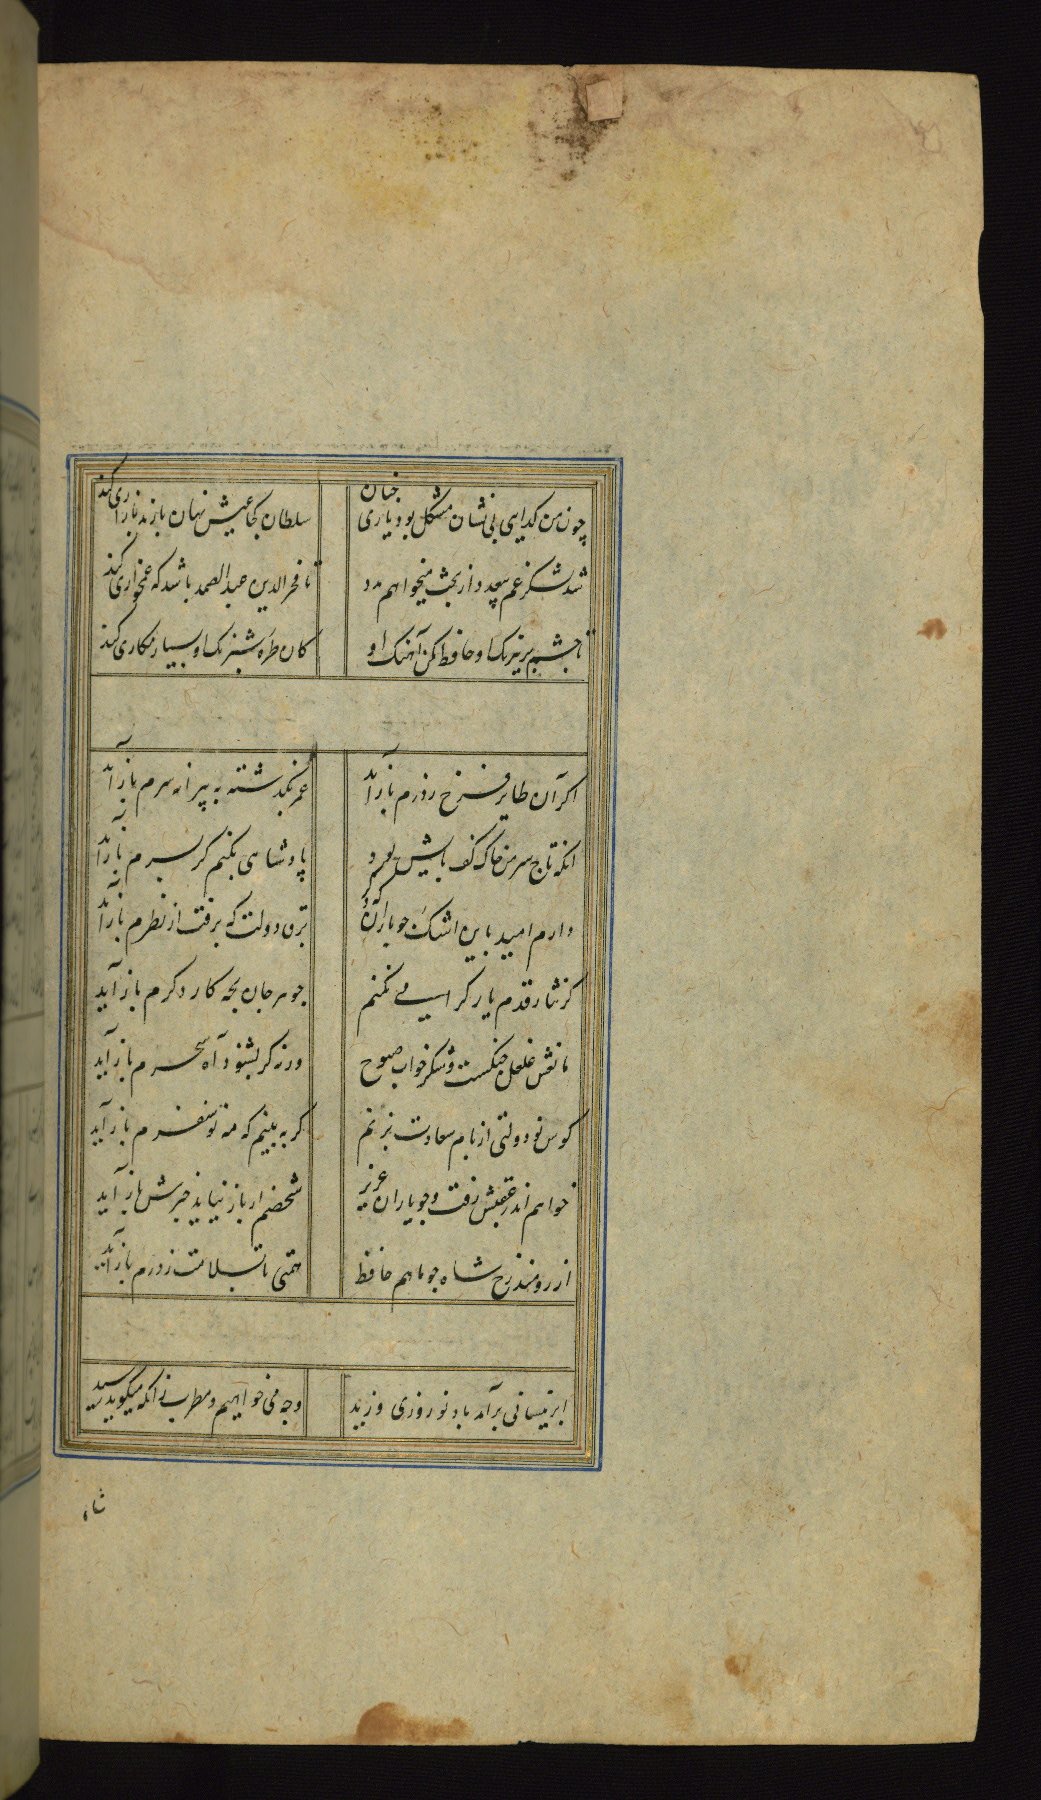 چون من گدایی بی نشان مشکل بود یاری چنان
سلطان کجا عیش نهان با رند بازاری کند
شد لشکر غم بیعدد از بخت میخواهم مدد
تا فخر الدین عبد الصمد باشد که غمخواری کند
با چشم پر نیرنک او حافظ مکن آهنک او
کان طره شبرنک او بسیار مکاری کند
اکر آن طایر فرخ ز درم باز آید
عمر بگذشته به پیرانه سرم باز آید
انکه تاج سر من خاک کف پایش بود
پادشاهی بکنم کر بسرم باز آید
دارم امید باین اشک چو باران که دکر
برق دولت که برفت از نظرم باز آید
کر نثار قدم یار کرامی نکنم
جوهر جان بچه کار دکرم باز آید
مانعش غلغل چنکست و شکر خواب صبوح
ورنه کر بشنود آه سحرم باز آید
کوس نو دولتی از بام سعادت بزنم
کر به بینم که مه نو سفرم باز آید
خواهم اندر عقبش رفت و چو یاران عزیز
شخصم ار باز نیاید خبرش باز آید
ارزومند رخ شاه چو ماهم حافظ
همتی تا بسلامت ز درم باز آید
ابر نیسانی برآمد باد نوروزی وزید
وجه می خواهیم و مطرب زانکه میکوید رسید
شاه